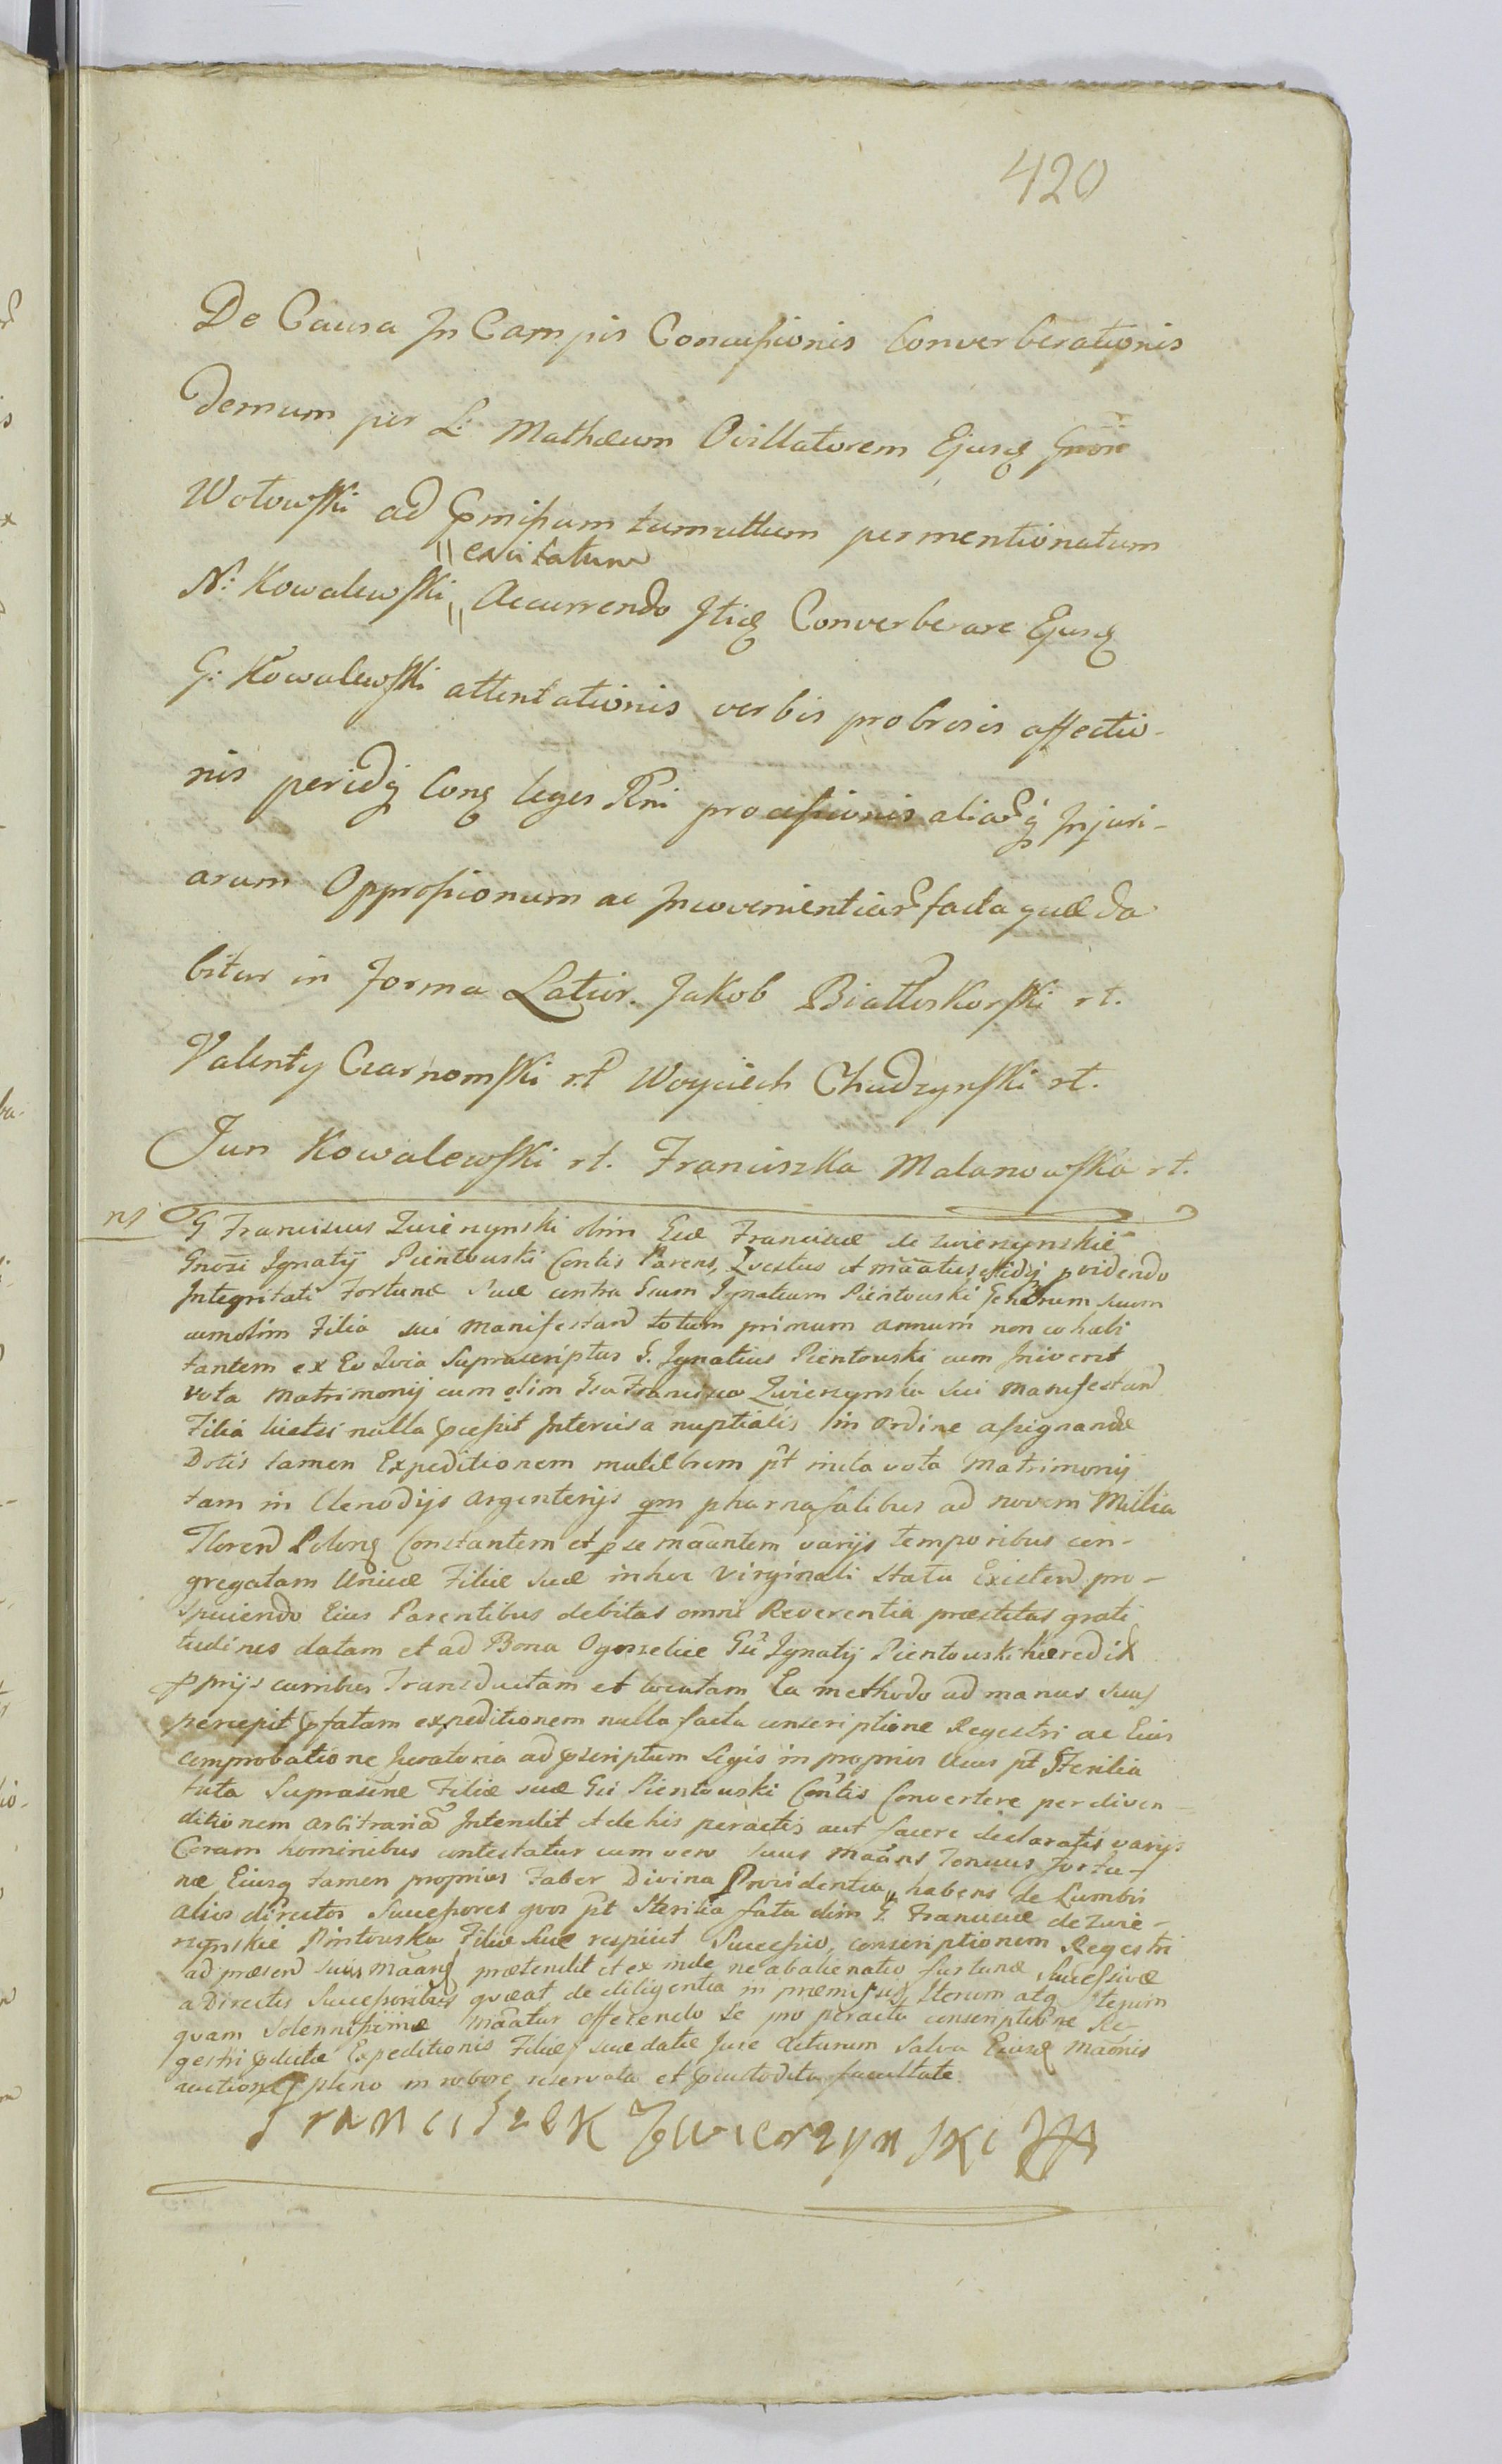 420
De Causa In Campis Concussionis Converberationis
demum per L: Mathæum Ovillatorem Ejusq Gnosi
Wołowski ad præmissum tumultum per mentionatum
excitatum
N: Kowalewski Accurrendo Itiq Converberare Ejusq
G: Kowalewski attentationis verbis probrosis affectio-
nis peridq Conq leges Rni processionis aliarq Injuri-
arum Oppressionum ac Inconvenientiar facta quæ da
bitur in Forma Latior. Jakob Białłoskorski rt.
Valenty Czarnomski rt Woyciech Chudzynski rt.
Jan Kowalewski rt. Franciszka Malanowska rt.
ns
G Franciscus Zwierzynski olim Gæ Franciscæ de Zwierzynskie
Gnosi Ignatij Pientowski Contis Parens, Questus et maatus est idq pvidendo
Integritati Fortunæ Suæ contra Gsum Ignatium Pientowski Generum suum
cum olim Filia sui Manifestand totum primum annum non cohabi
tantem ex Eo Quia Suprascriptus G. Ignatius Pientowski cum Iniverit
vota Matrimonij cum olim Gsa Francisca Zwierzynska sui Manifestand
Filia licetsi nulla præcessit Intercisa nuptialis in ordine assignandæ
Dotis tamen Expeditionem muliebrem pt inita vota Matrimonij
tam in Clenodijs argenterijs qm pharnasalibus ad novem Millia
Floren Polonq Constantem et p se maantem varijs temporibus con-
gregatam Unicæ Filiæ suæ in hoc virginali statu Existend pro-
spiciendo Eius Parentibus debitas omni Reverentia præstitas grati
tudines datam et ad Bona Gsi Ignatij Pientowski hæredit
pprijs curribus Transductam et locatam Ea methodo ad manus suas
percepit præfatam expeditionem nulla facta conscriptione Regestri ac Eius
comprobatione Juratoria ad præscriptum Legis in proprios usus pt Sterilia
fata Suprasine Filiæ suæ Gsi Pientowski Contis Convertere per diven
ditionem arbitraria Intendit et de his peractis aut facere declaratis varijs
Coram hominibus contestatur cum vero suus maans Fortu-
næ Eiusq tamen proprius Faber Divina Providentia habens de Lumbis
alios directos Successores quos pt Sterilia fata olim G. Franciscæ de Zwie-
rzynskie Pintowska Filiæ suæ respicit Successio, conscriptionem Regestri
ad præsend suus maanq prætendit et ex inde ne abalienatio fortunæ Successivæ
a Directis Successoribus queat de diligentia in præmissis Iterum atq iterum
quam solennissime maatur offerendo se pro peracta conscriptione Re-
gestri prædictæ Expeditionis Filiæ suæ datæ Jure acturum salva Eiusq maonis
auctione pleno in robore reservata et præcustodita facultate.
Franciszek Zwierzynski